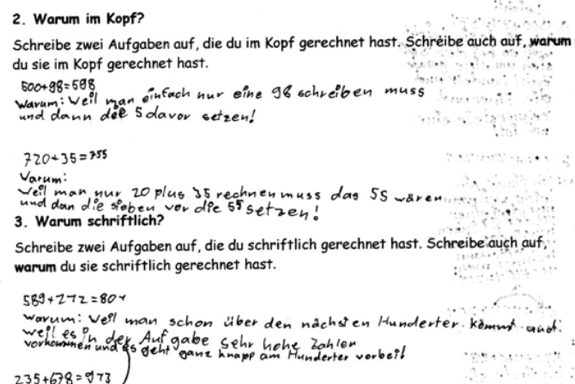 2. Warum im Kopf?
Schreibe zwei Aufgaben auf, die du im Kopf gerechnet hast. Schreibe auch auf, warum
du sie im Kopf gerechnet hast.
500+98=598
Warum: Weil man einfach nur eine 98 schreiben muss
und dann die 5 davor setzen!
720+35=755
Warum:
Weil man nur 20 plus 35 rechnen muss das 55 wären
und dan die sieben vor die 55 setzen!
3. Warum schriftlich?
Schreibe zwei Aufgaben auf, die du schriftlich gerechnet hast. Schreibe auch auf,
warum du sie schriftlich gerechnet hast.
589+212=801
Warum: Weil man schon über den nächsten Hunderter kommt und
weil es in der Aufgabe sehr hohe Zahlen
vorkommen und es geht ganz knapp am Hunderter vorbei!
235+678=913